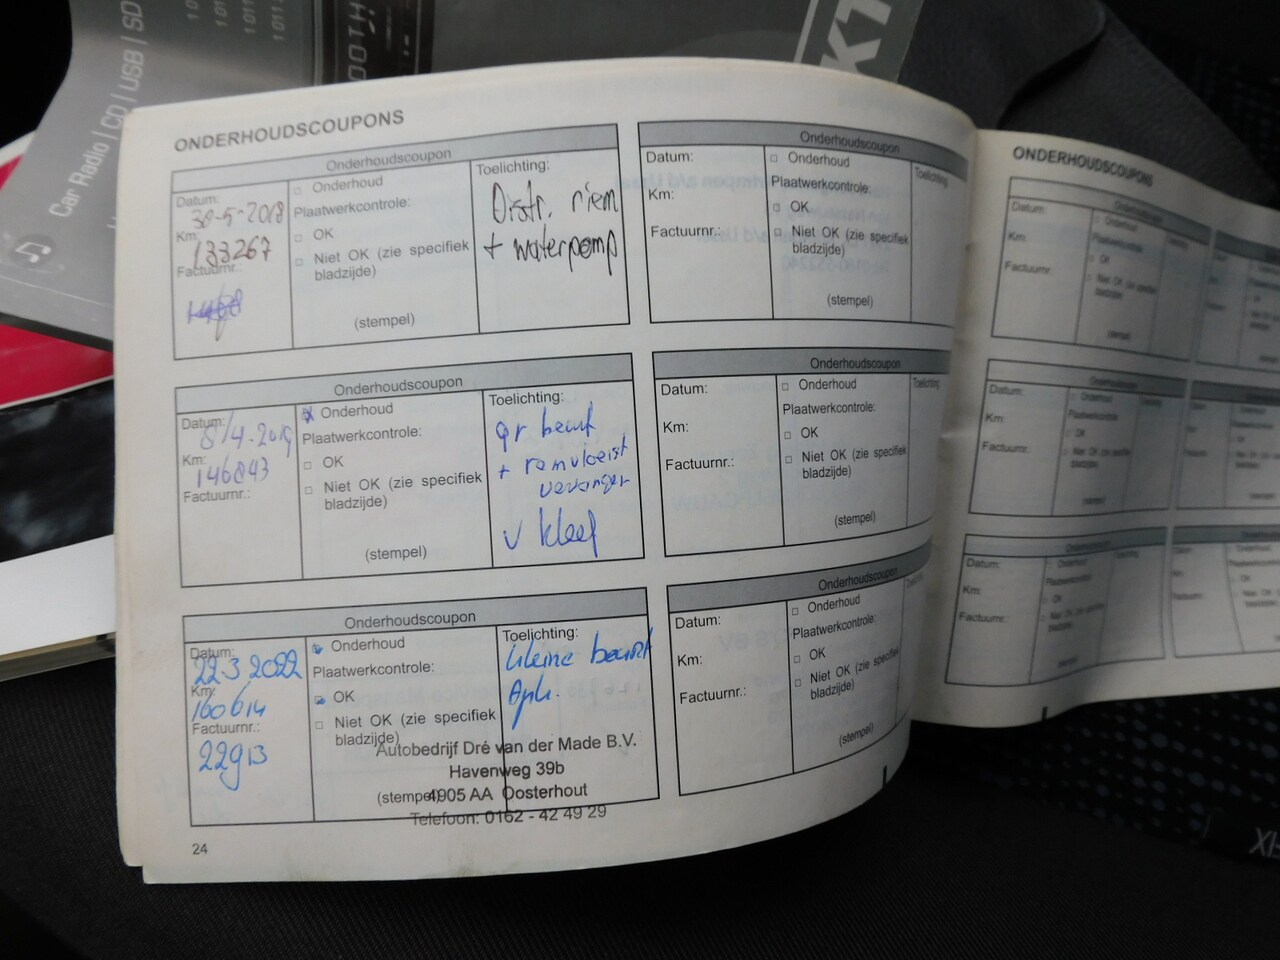 Car Radio | CD | USB | SD
ONDERHOUDSCOUPONS
Onderhoudscoupon
Datum:
30-5-2018
Km:
133267
Factuurnr.:
□ Onderhoud
Plaatwerkcontrole:
□ OK
□ Niet OK (zie specifiek
bladzijde)
(stempel)
Toelichting:
Distr. riem
+ waterpomp
Onderhoudscoupon
Datum:
8/4-2019
Km:
146843
Factuurnr.:
Onderhoud
Plaatwerkcontrole:
□ OK
□ Niet OK (zie specifiek
bladzijde)
(stempel)
Toelichting:
gr beurt
+ remvloeist
vervangen
v kleef
Onderhoudscoupon
Datum:
22-3 2022
Km:
160614
Factuurnr.:
22913
Onderhoud
Plaatwerkcontrole:
OK
□ Niet OK (zie specifiek
bladzijde)
(stempel)
Toelichting:
kleine beurt
Apk.
Autobedrijf Dré van der Made B.V.
Havenweg 39b
4905 AA Oosterhout
Telefoon: 0162 - 42 49 29
24
Onderhoudscoupon
Datum:
Km:
Factuurnr.:
□ Onderhoud
Plaatwerkcontrole:
□ OK
□ Niet OK (zie specifiek
bladzijde)
(stempel)
Toelichting
Onderhoudscoupon
Datum:
Km:
Factuurnr.:
□ Onderhoud
Plaatwerkcontrole:
□ OK
□ Niet OK (zie specifiek
bladzijde)
(stempel)
Toelichting
Onderhoudscoupon
Datum:
Km:
Factuurnr.:
□ Onderhoud
Plaatwerkcontrole:
□ OK
□ Niet OK (zie specifiek
bladzijde)
(stempel)
ONDERHOUDSCOUPONS
Datum:
Km:
Factuurnr.
Datum:
Km:
Factuurnr.:
Datum:
Km:
Factuurnr.: